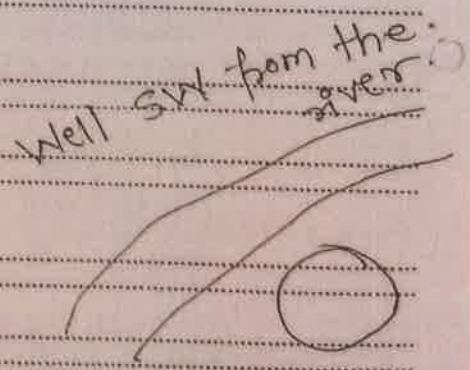 Well SW from the
river.